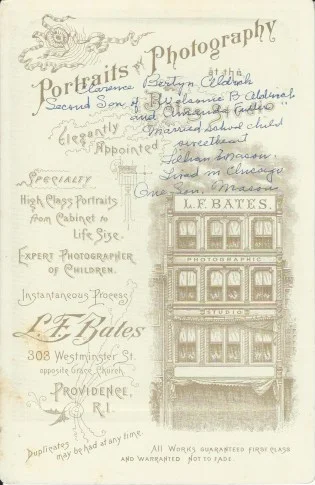 Portraits and Photography
at the
Clarence Bertyn Aldrich
Second Son of Welcome B Aldrich
and Amanda
Elegantly
Appointed
Married School child
sweetheart
Lillian
Lived in Chicago
One Son, Mason
Specialty
High Class Portraits
from Cabinet to
Life Size.
Expert Photographer
of Children.
Instantaneous Process
L.F. Bates
303 Westminster St.
opposite Grace Church
Providence,
R.I.
L.F. BATES.
PHOTOGRAPHIC
STUDIO
Duplicates
may be had at any time.
All Works guaranteed first class
and warranted not to fade.